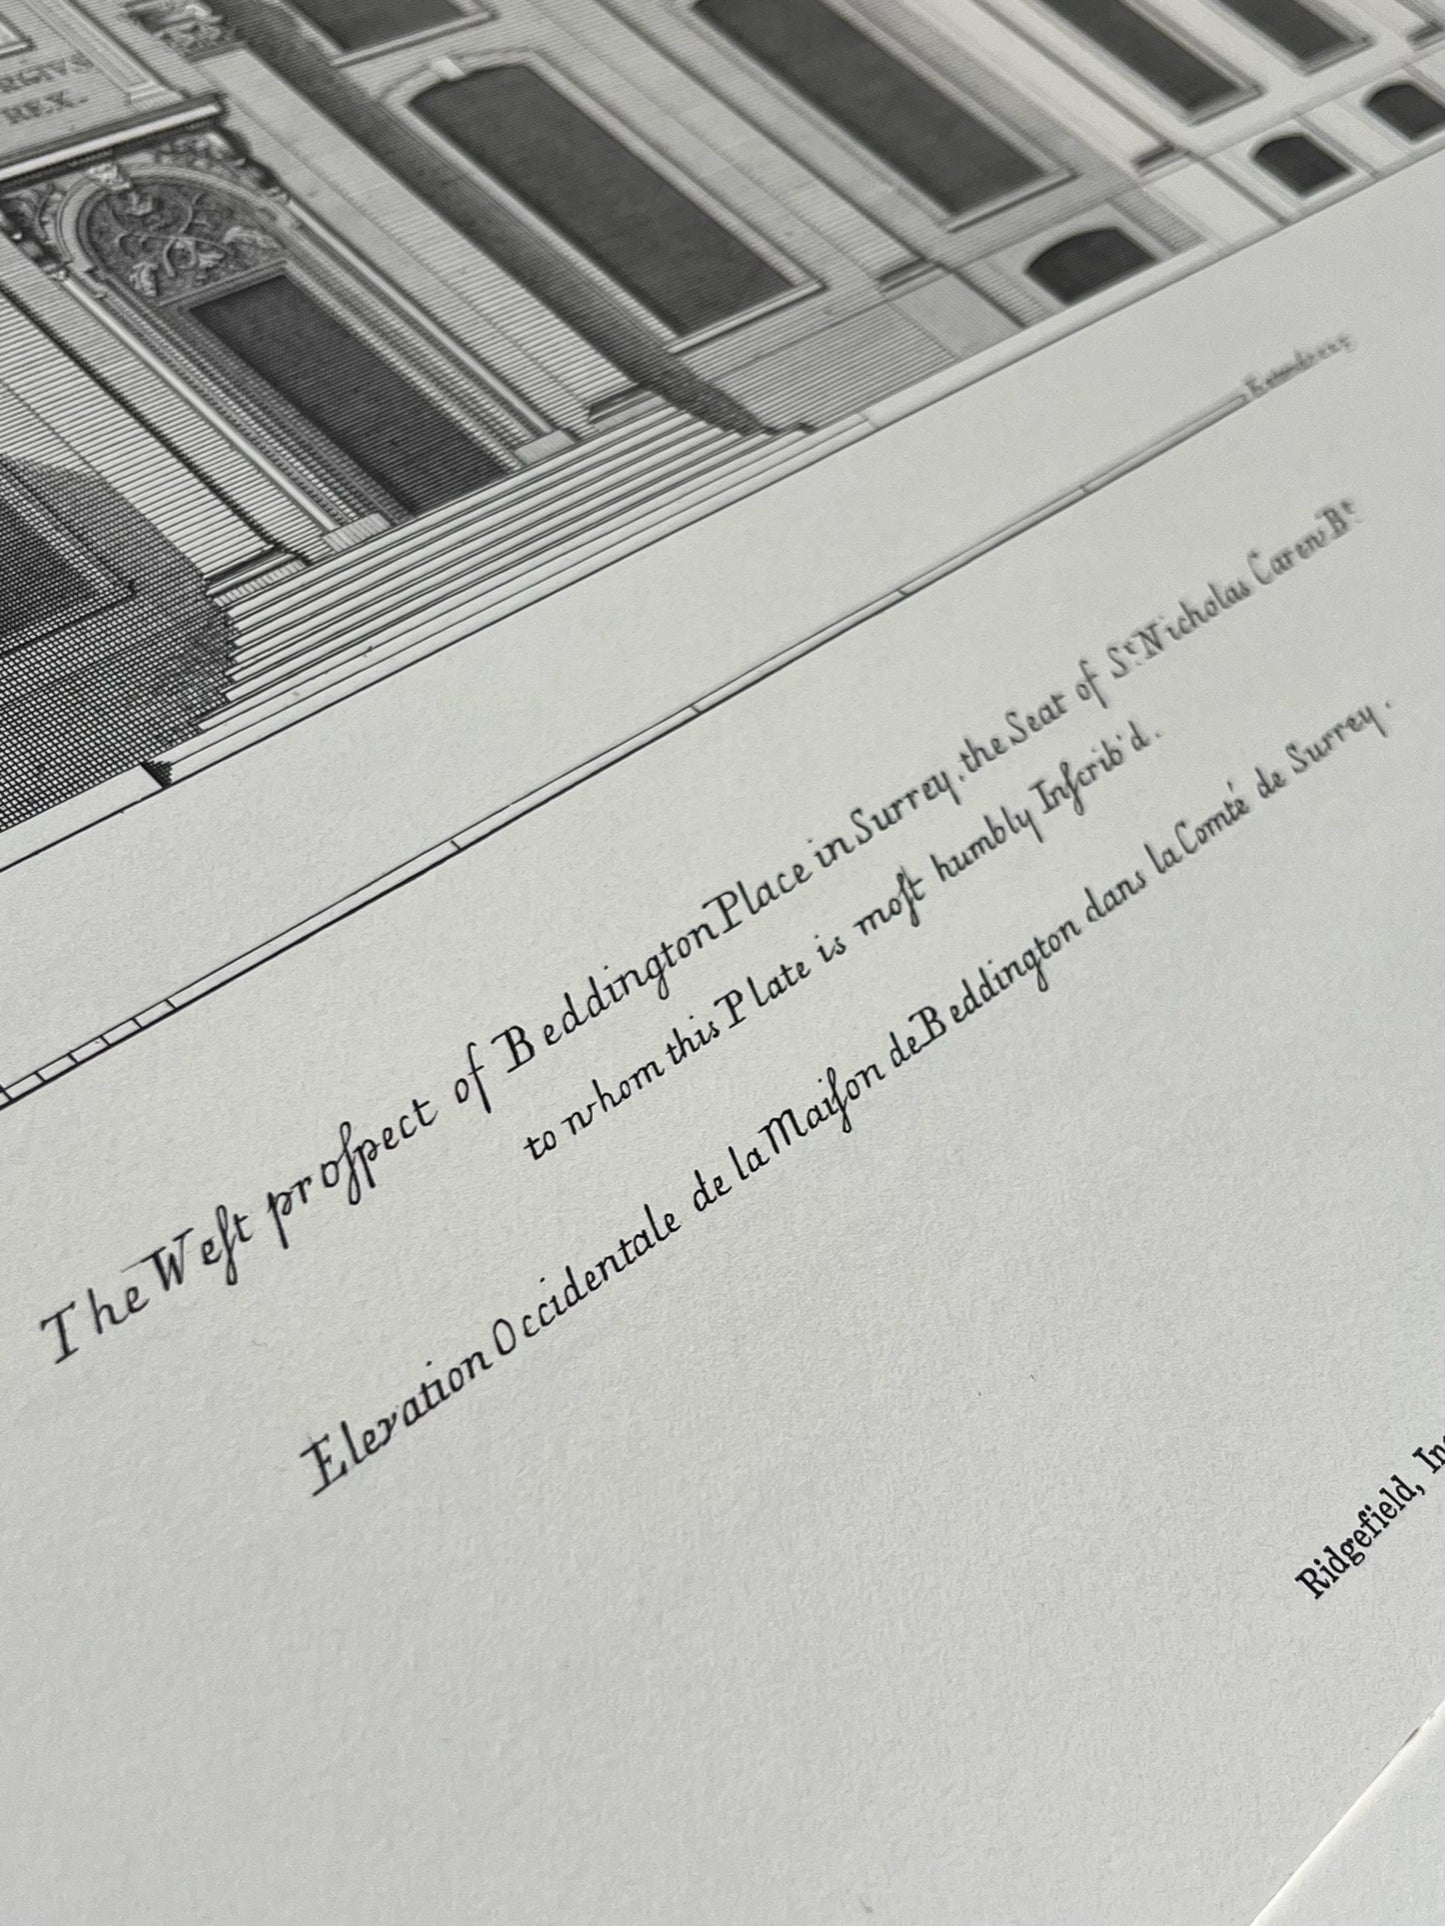 RGIVS
REX.
The Weſt proſpect of Beddington Place in Surrey, the Seat of Sr. Nicholas Carew Bt.
to whom this Plate is moſt humbly Inſcrib'd.
Elevation Occidentale de la Maiſon de Beddington dans la Comté de Surrey.
Ridgefield,